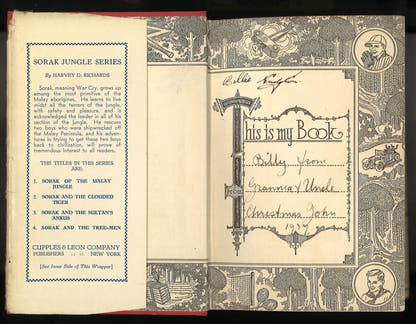 SORAK JUNGLE SERIES
By HARVEY D. RICHARDS
Sorak, meaning War Cry, grows up
among the most primitive of the
Malay aborigines. He learns to live
midst all the terrors of the jungle,
with safety and pleasure, and is
acknowledged the leader in all of his
section of the jungle. He rescues
two boys who were shipwrecked off
the Malay Peninsula, and his adven-
tures in trying to get these two boys
back to civilization, will prove of
tremendous interest to all readers.
THE TITLES IN THIS SERIES
ARE:
1. SORAK OF THE MALAY
JUNGLE
2. SORAK AND THE CLOUDED
TIGER
3. SORAK AND THE SULTAN'S
ANKUS
4. SORAK AND THE TREE-MEN
CUPPLES & LEON COMPANY
PUBLISHERS :: :: NEW YORK
[See Inner Side of This Wrapper]
Billie
This is my Book
Billy from
Granma & Uncle
Christmas John
1937